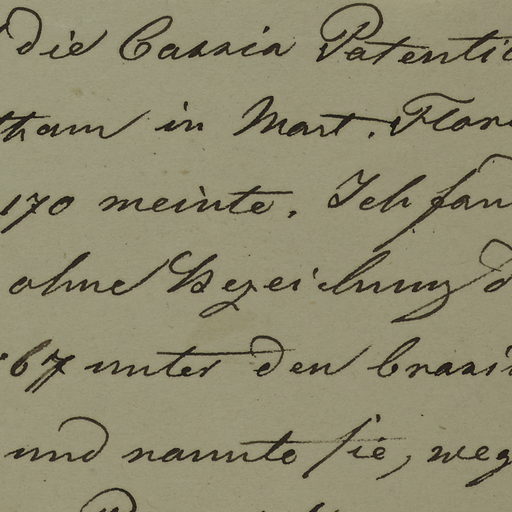 die Cassia Patentic
tham in Mart. Flor
170 meinte. Ich fan
ohne Bezeichnung d
67 unter den brasi
und nannte sie, weg